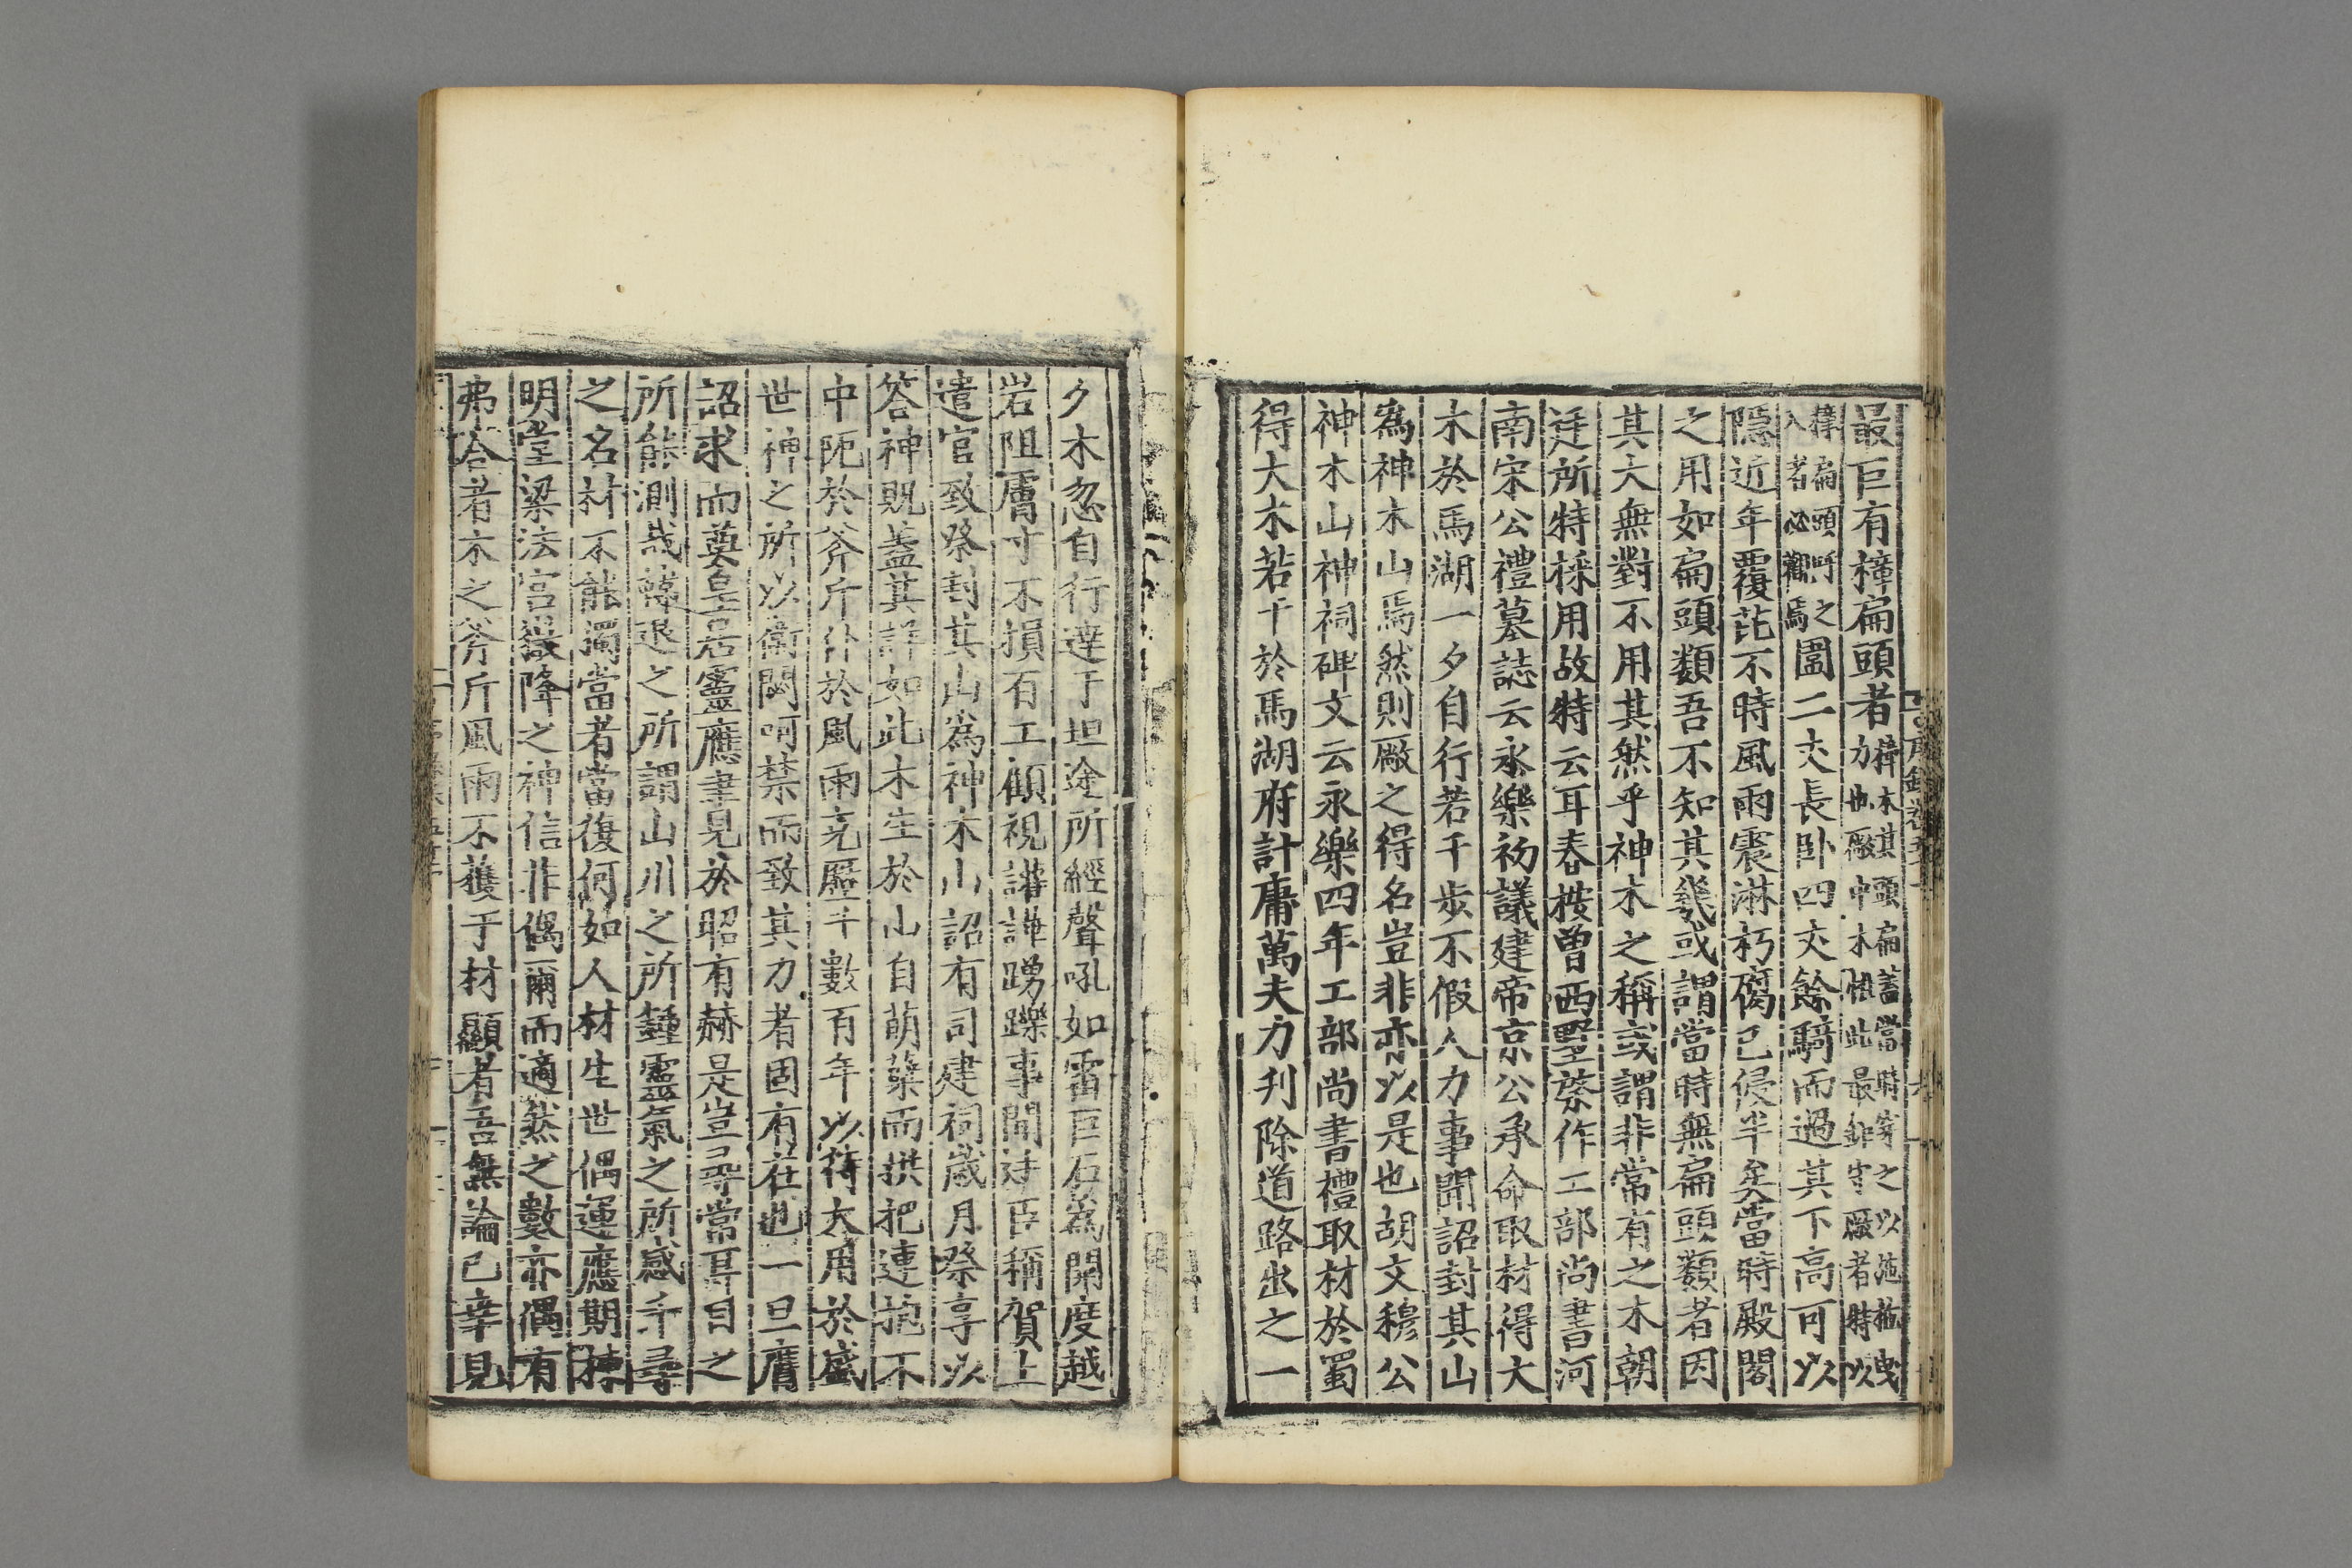 最巨有樟扁頭者樟木其頭扁蓋當時穿之以施拖曳力也廠中木惟此最鉅守廠者特以
樟扁頭呼之入者必觀焉圍二丈長卧四丈餘騎而過其下高可以
隱近年覆苫不時風雨震淋朽腐已侵半矣當時殿閣
之用如扁頭類吾不知其幾或謂當時無扁頭類者因
其大無對不用其然乎神木之稱或謂非常有之木朝
廷所特採用故特云耳春按曾西墅棨作工部尚書河
南宋公禮墓誌云永樂初議建帝京公承命取材得大
木於馬湖一夕自行若干步不假人力事聞詔封其山
為神木山焉然則廠之得名豈非亦以是也胡文穆公
神木山神祠碑文云永樂四年工部尚書禮取材於蜀
得大木若干於馬湖府計庸萬夫力刋除道路出之一
夕木忽自行達于坦途所經聲吼如雷巨石為開度越
岩阻膚寸不損百工顧視讙譁踴躍事聞廷臣稱賀上
遣官致祭封其山為神木山詔有司建祠歲月祭享以
答神貺蓋其詳如此木生於山自萌蘖而拱把連抱不
中阨於斧斤仆於風雨克歷千數百年以待大用於盛
世神之所以衞閟呵禁而致其力者固有在也一旦膺
詔求而奠皇居靈應聿見於昭有赫是豈尋常耳目之
所能測哉韓退之所謂山川之所鍾靈氣之所感千尋
之名材不能獨當者當復何如人材生世偶運應期棟
明堂梁法宫嶽降之神信非偶爾而適然之數亦偶有
弗合者木之斧斤風雨不獲于材顯者吾無論已幸見